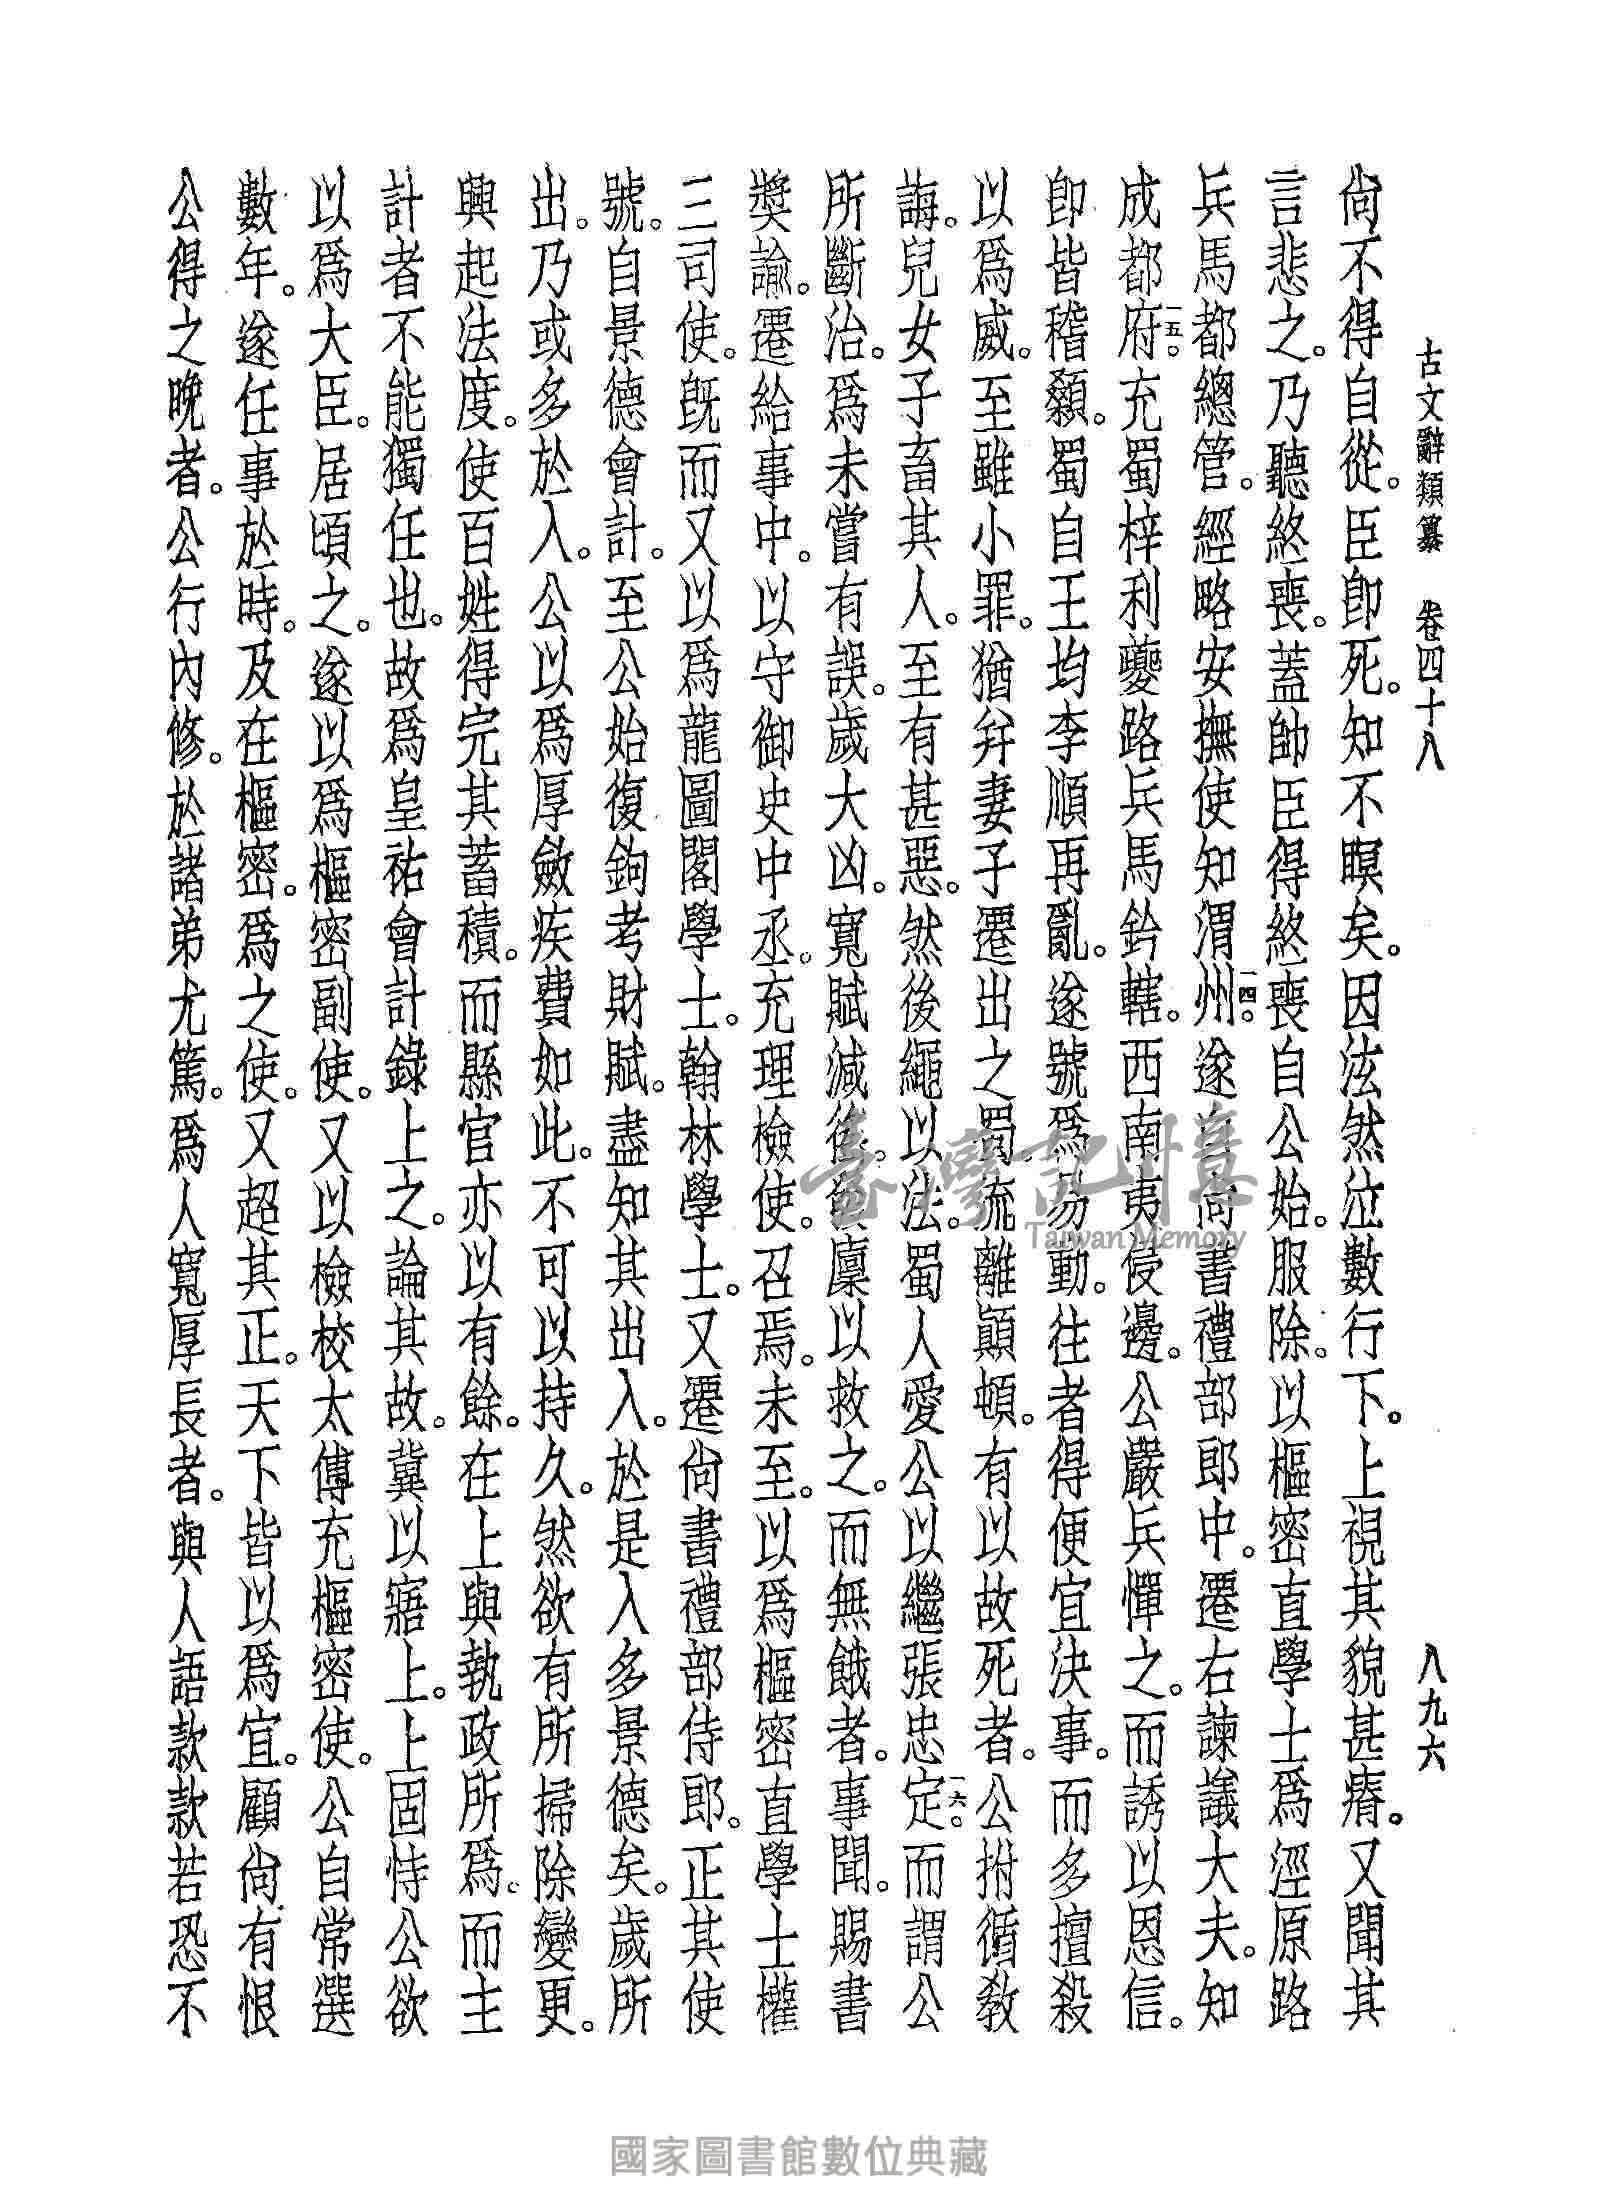 古文辭類纂　卷四十八　八九六
尙不得自從。臣卽死。知不瞑矣。因泫然泣數行下。上視其貌甚瘠。又聞其
言悲之。乃聽終喪。蓋帥臣得終喪自公始。服除。以樞密直學士爲涇原路
兵馬都總管。經略安撫使知渭州。一四。遂自尙書禮部郎中。遷右諫議大夫。知
成都府。一五。充蜀梓利夔路兵馬鈐轄。西南夷侵邊。公嚴兵憚之。而誘以恩信。
卽皆稽顙。蜀自王均李順再亂。遂號爲易動。往者得便宜決事。而多擅殺
以爲威。至雖小罪。猶幷妻子遷出之蜀。流離顚頓。有以故死者。公拊循教
誨。兒女子畜其人。至有甚惡。然後繩以法。蜀人愛公以繼張忠定。一六。而謂公
所斷治。爲未嘗有誤。歲大凶。寬賦減徭。發廩以救之。而無餓者。事聞。賜書
獎諭。遷給事中。以守御史中丞。充理檢使。召焉。未至。以爲樞密直學士權
三司使。旣而又以爲龍圖閣學士。翰林學士。又遷尙書禮部侍郎。正其使
號。自景德會計。至公始復鉤考財賦。盡知其出入。於是入多景德矣。歲所
出。乃或多於入。公以爲厚斂疾費如此。不可以持久。然欲有所掃除變更。
興起法度。使百姓得完其蓄積。而縣官亦以有餘。在上與執政所爲。而主
計者不能獨任也。故爲皇祐會計錄上之。論其故。冀以寤上。上固恃公欲
以爲大臣。居頃之。遂以爲樞密副使。又以檢校太傅充樞密使。公自常選
數年。遂任事於時。及在樞密。爲之使。又超其正。天下皆以爲宜。顧尙有恨
公得之晚者。公行內修。於諸弟尤篤。爲人寬厚長者。與人語款款若恐不
臺灣記憶
Taiwan Memory
國家圖書館數位典藏